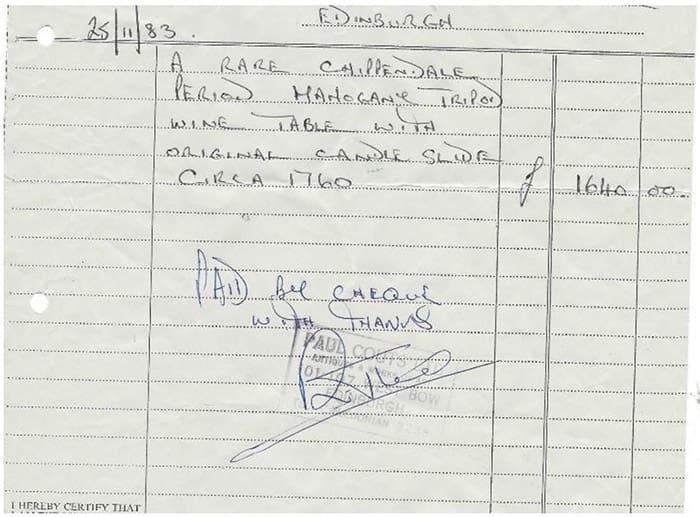 EDINBURGH
25/11/83.
A RARE CHIPPENDALE
PERIOD MAHOGANY TRIPOD
WINE TABLE WITH
ORIGINAL CANDLE SLIDE
CIRCA 1760 £ 1640 00.
PAID BY CHEQUE
WITH THANKS
PAUL COUTS
ANTIQUE &
BOW
EDINBURGH
I HEREBY CERTIFY THAT